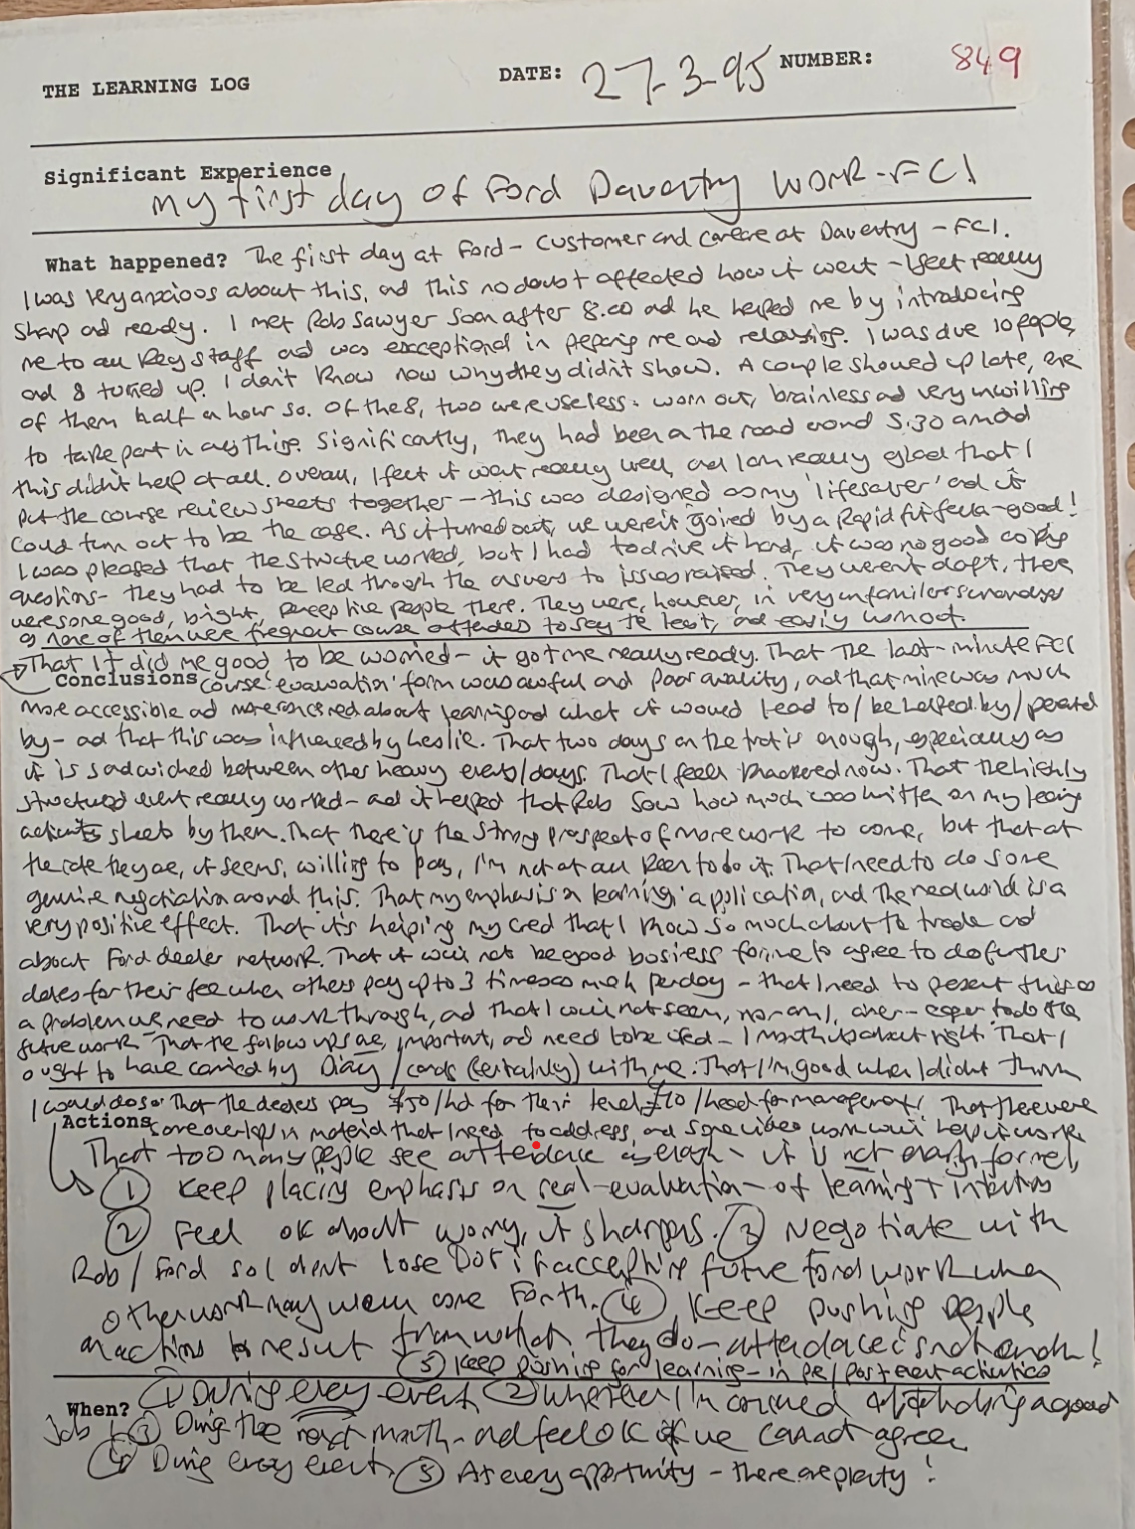 THE LEARNING LOG DATE: 27-3-95 NUMBER: 849
Significant Experience
My first day of Ford Daventry work - FC!
What happened? The first day at Ford - Customer and at Daventry - FCI.
I was very anxious about this, and this no doubt affected how it went - I felt really
sharp and ready. I met Rob Sawyer soon after 8.00 and he helped me by introducing
me to all key staff and was exceptional in preparing me and relaxing. I was due 10 people,
and 8 turned up. I don't know now why they didn't show. A couple showed up late, one
of them half an hour so. Of the 8, two were useless: worn out, brainless and very unwilling
to take part in anything. Significantly, they had been on the road around 5.30 am and
this didn't help at all. Overall, I felt it went really well, and I am really glad that I
put the course review sheets together - this was designed as my 'lifesaver' and it
could turn out to be the case. As it turned out, we weren't joined by a Rapid fit fella - good!
I was pleased that the structure worked, but I had to drive it hard, it was no good
questions - they had to be led through the answers to issues raised. They weren't daft, there
were some good, bright, perceptive people there. They were, however, in very unfamiliar surroundings
as none of them were frequent course attenders to say the least, and easily worn out.
That it did me good to be worried - it got me really ready. That the last-minute FCI
Conclusions 'course evaluation' form was awful and poor quality, and that mine was much
more accessible and more concerned about learning and what it would lead to / be helped by /
by - and that this was influenced by Leslie. That two days on the trot is enough, especially as
it is sandwiched between other heavy events/days. That I feel knackered now. That the highly
structured event really worked - and it helped that Rob saw how much was written on my learning
activities sheets by them. That there is the strong prospect of more work to come, but that at
the rate they are, it seems, willing to pay, I'm not at all keen to do it. That I need to do some
genuine negotiation around this. That my emphasis on learning, application, and the real world is a
very positive effect. That it's helping my cred that I know so much about the trade and
about Ford dealer network. That it will not be good business for me to agree to do further
dates for their fee when others pay up to 3 times as much per day - that I need to present this as
a problem we need to work through, and that I will not seem, nor am I, over-eager to do the
future work. That the follow ups are important, and need to be - 1 month is about right. That I
ought to have carried by Diary / cards (certainly) with me. That I'm good when I didn't think
I would do so. That the dealers pay £50/hd for their level, £10/head for management! That there were
Actions some overlaps in material that I need to address, and some video work will help it work.
That too many people see attendance as enough - it is not enough for me!
① Keep placing emphasis on real - evaluation - of learning + intentions
② Feel OK about worry, it sharpens. ③ Negotiate with
Rob / Ford so I don't lose out if accepting future Ford work when
other work may well come forth. ④ Keep pushing people
on actions to result from what they do - attendance is not enough!
⑤ Keep pushing for learning - in pre/post event activities
When? ① During every event ② Whenever I'm concerned doing a good
job ③ During the next month - and feel OK if we cannot agree
④ During every event ⑤ At every opportunity - there are plenty!